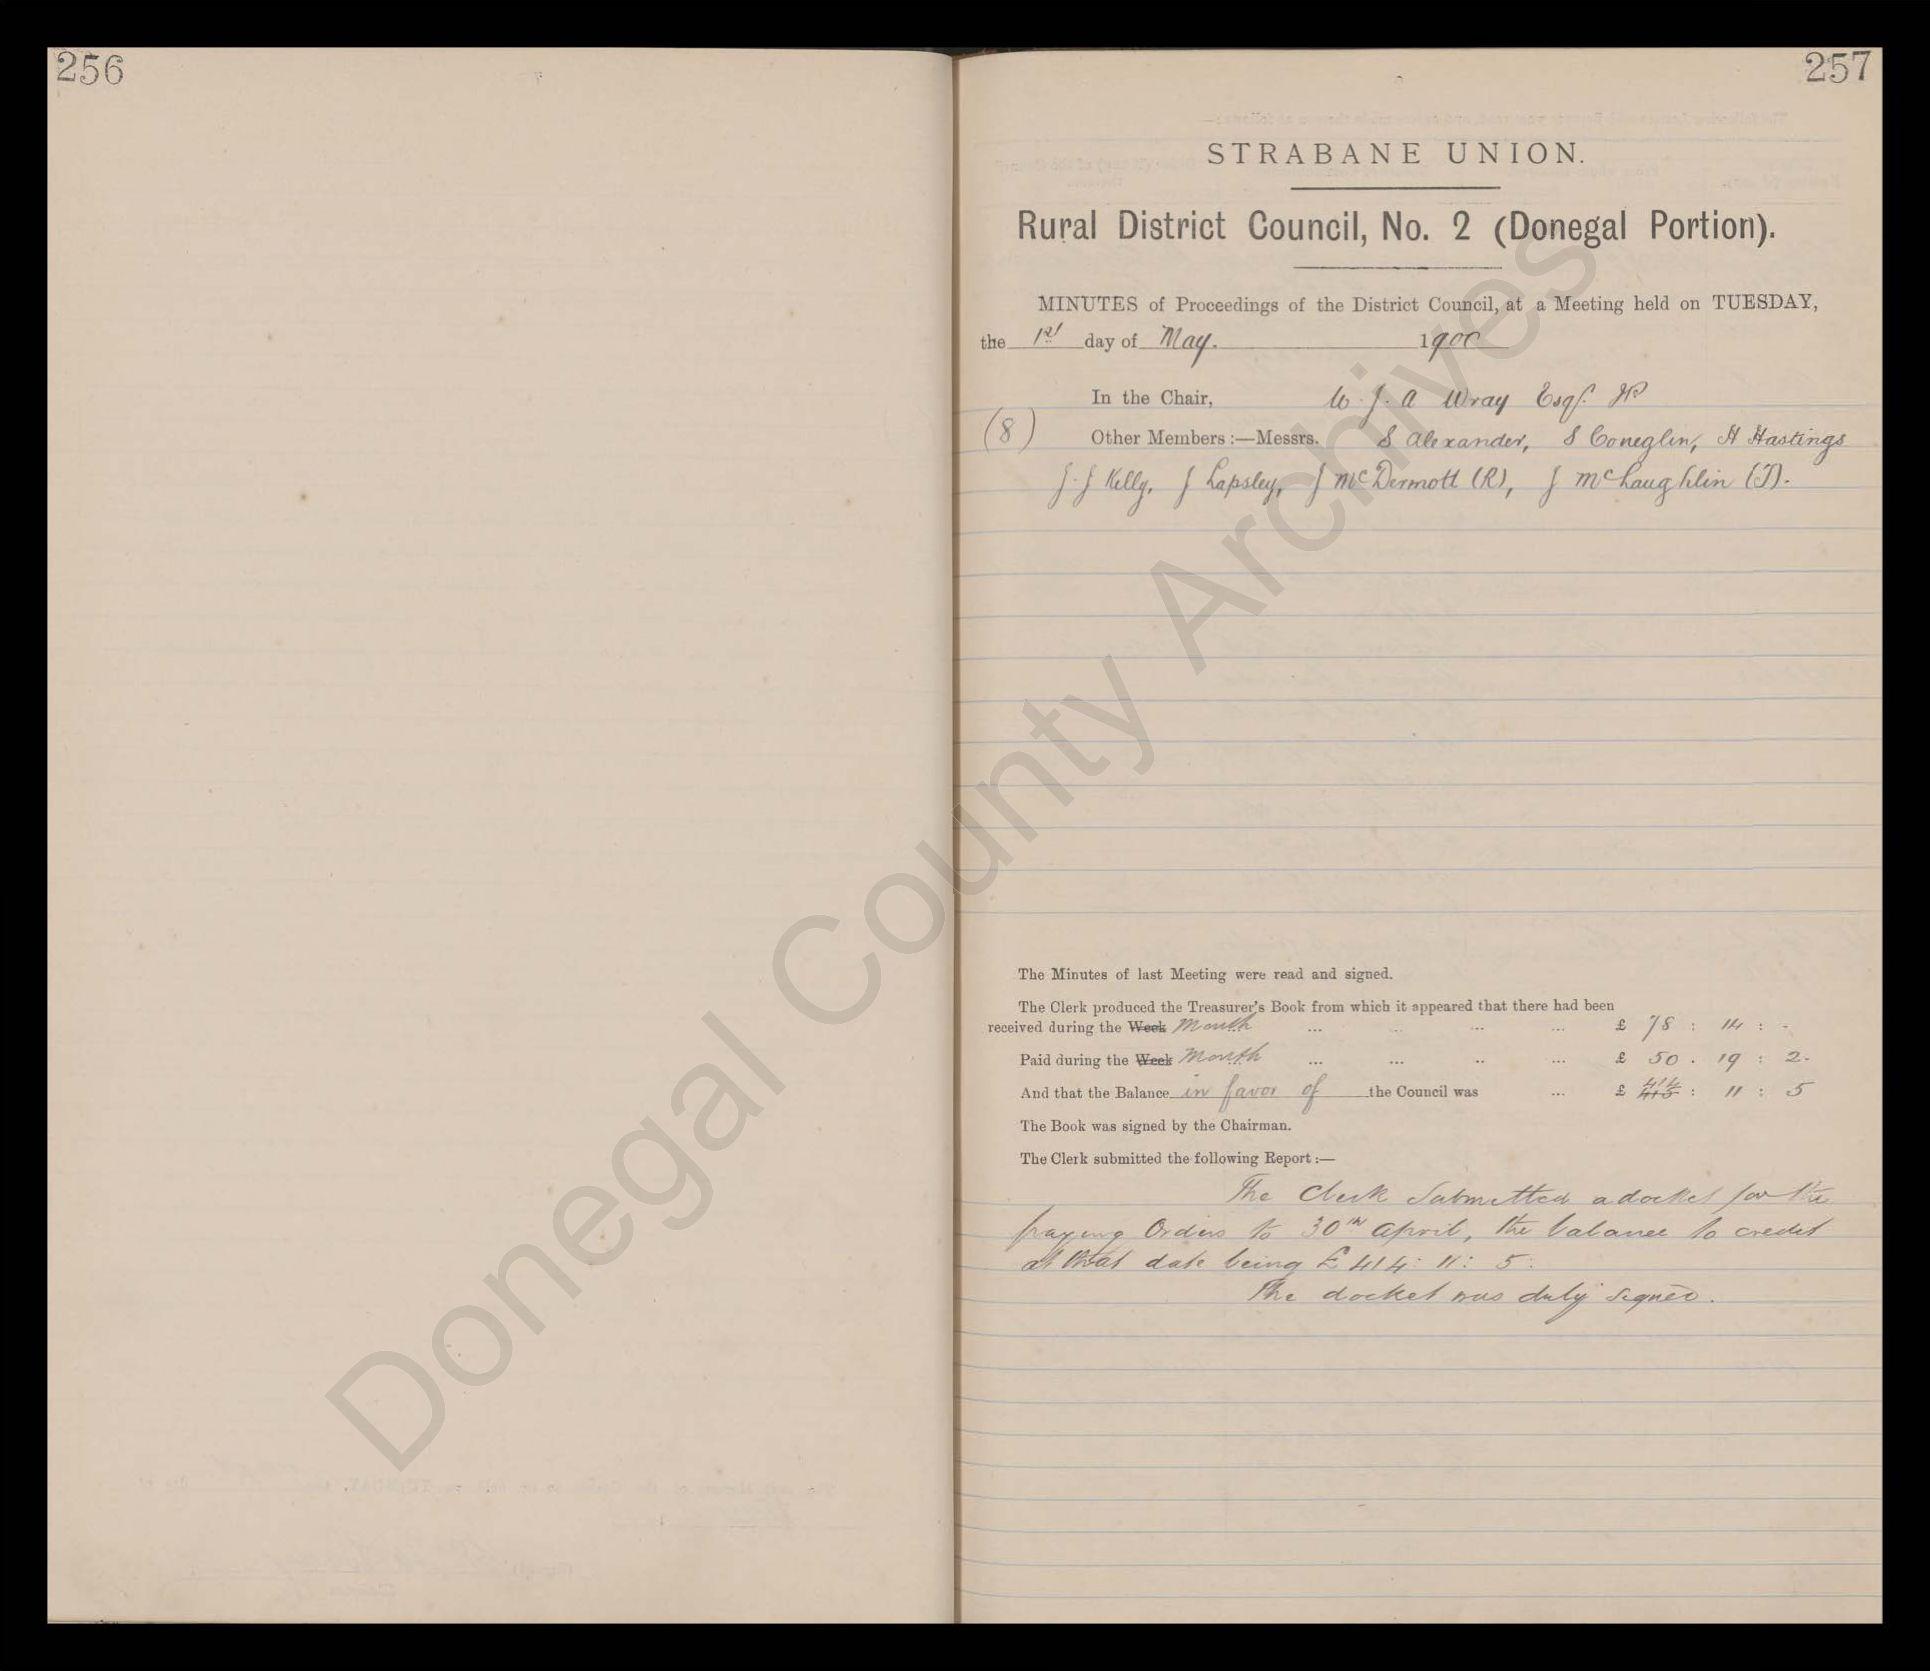 256
257
STRABANE UNION.
Rural District Council, No. 2 (Donegal Portion).
MINUTES of Proceedings of the District Council, at a Meeting held on TUESDAY,
the 1st day of May. 1900
In the Chair, W. J. A Wray Esqr. JP
(8) Other Members :—Messrs. S Alexander, S Coneglin, H Hastings
J. J Kelly, J Lapsley, J McDermott (R), J McLaughlin (J).
The Minutes of last Meeting were read and signed.
The Clerk produced the Treasurer's Book from which it appeared that there had been
received during the Week Month ... ... ... ... £ 78 : 14 : -
Paid during the Week Month ... ... ... ... £ 50 . 19 : 2.
And that the Balance in favor of the Council was ... £ 414 415 : 11 : 5
The Book was signed by the Chairman.
The Clerk submitted the following Report :—
The Clerk Submitted a docket for the
paying Orders to 30th April, the balance to credit
at that date being £ 414 : 11 : 5 :
The docket was duly signed.
Donegal County Archives